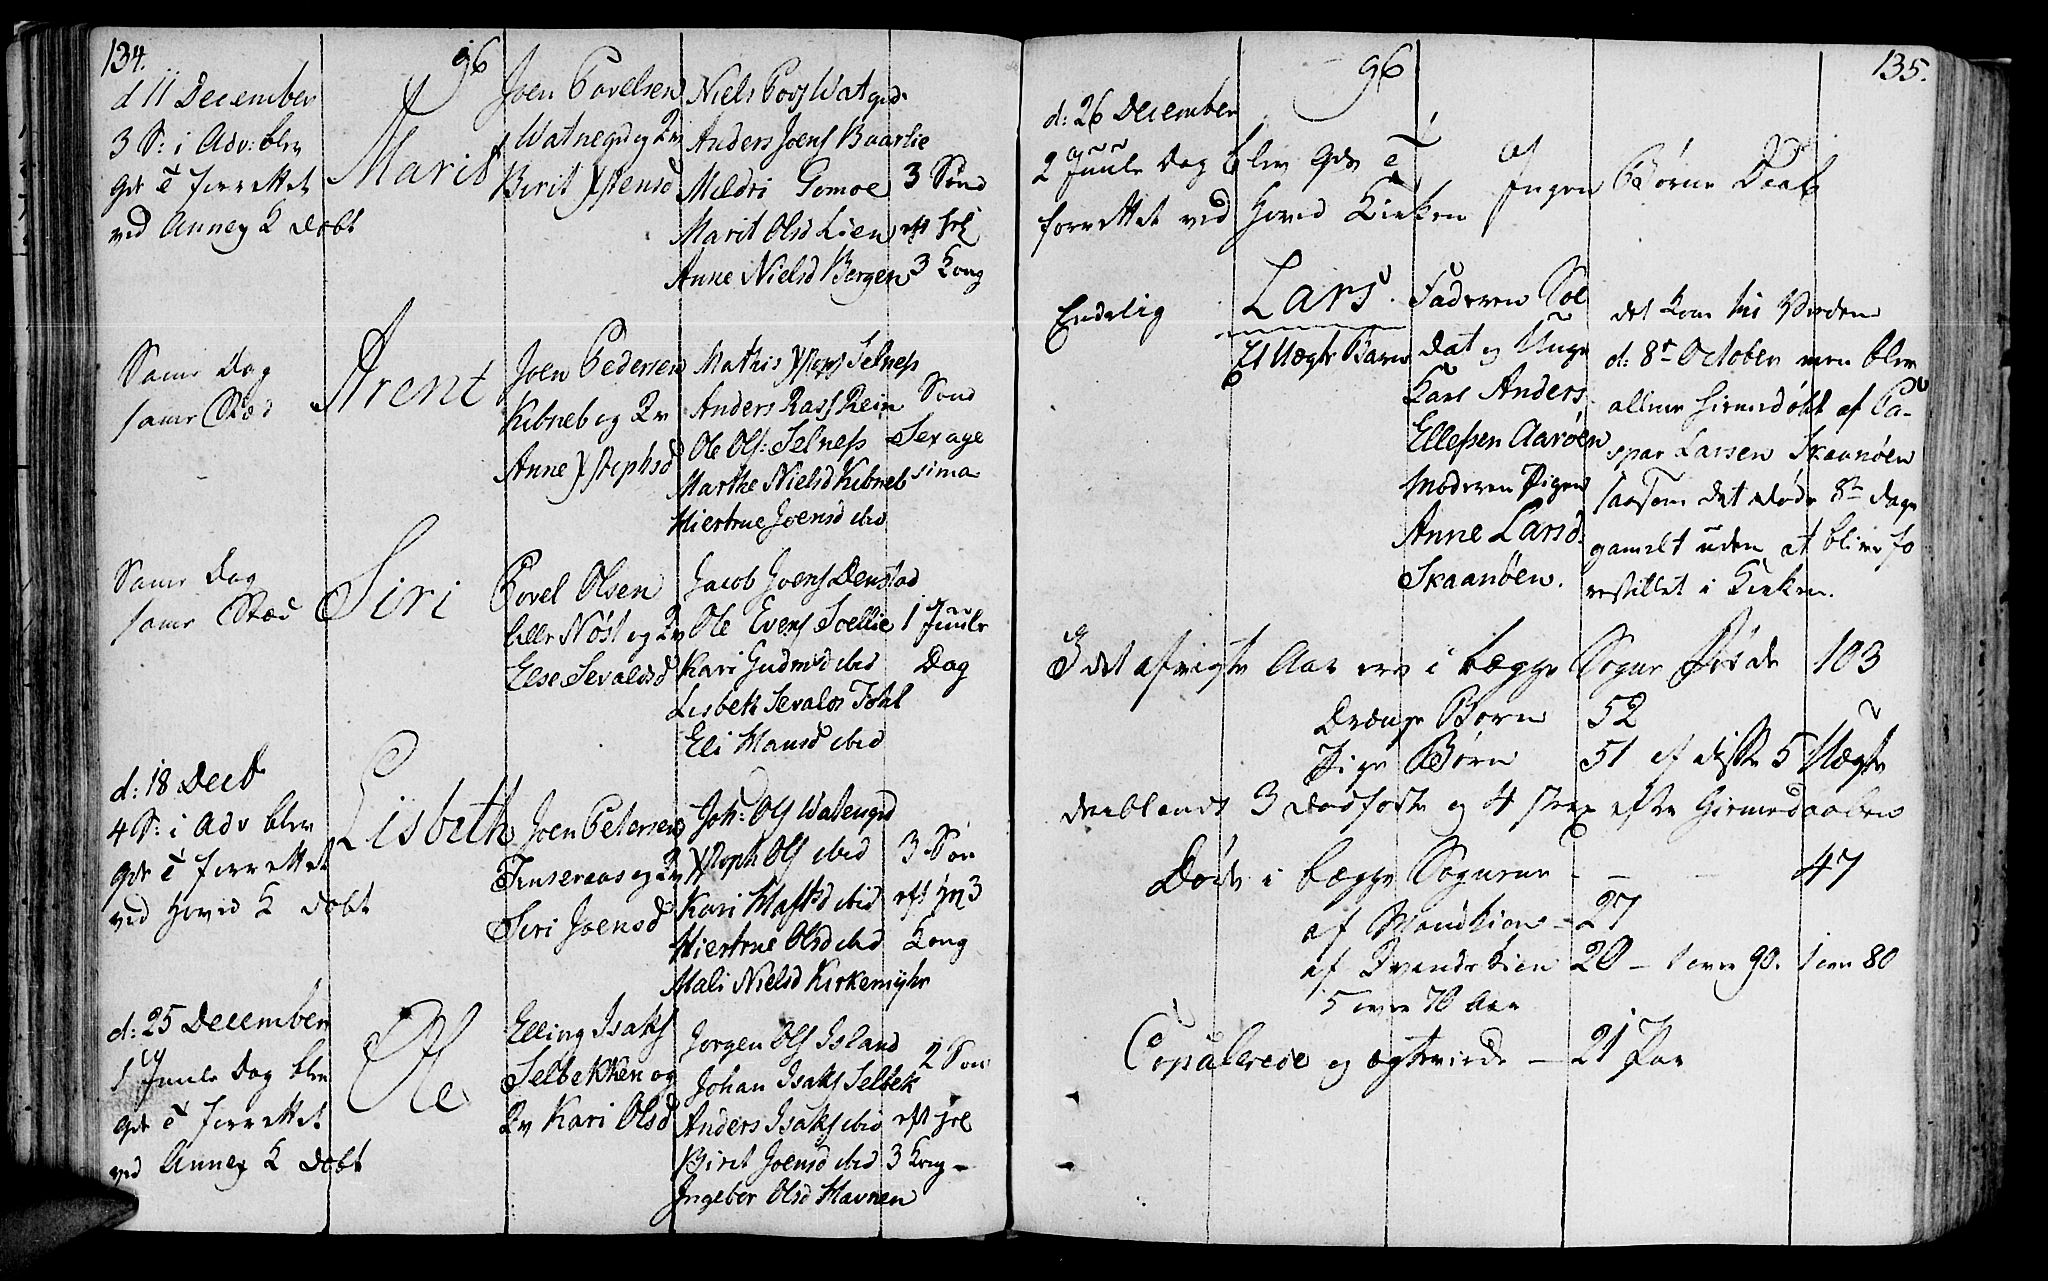 134.
96
d 11 December
3 S: i Adv: blev
Gds T forrettet
ved Annex K døbt
Marit
Joen Povelsen
Watnegrd og Kv
Berit Xstensd
Niels Povs Watgrd
Anders Joens Baarlie
Meldri Gomoe
Marit Olsd Lien
Anne Nielsd Bergen
3 Sønd
eft hel
3 Kong
Same Dag
same Stæd
Arent
Joen Pedersen
Kibneb og Kv
Anne Xstophsd
Mathis Selness
Anders Rass Rein
Ole Ols: Selness
Marthe Nielsd Kibneb
Hiertrue Joensd ibid
Sønd
Sexage
sima
Same Dag
same Stæd
Siri
Povel Olsen
Lille Nøst og Kv
Else Sevaldsd
Jacob Joens Denstad
Ole Evens Soellie
Kari Gudmsd ibid
Lisbeth Sevalds
Eli Hansd ibid
1 Juule
Dag
d: 18 Decb
4 S: i Adv blev
Gds T forrettet
ved Hoved K døbt
Lisbeth
Joen Petersen
og Kv
Siri Joensd
Joh: Ols Watengrd
Xstoph Ols ibid
Kari ibid
Hiertrue Olsd ibid
Mali Nielsd Kirkemyhr
3 Søn
eft 3
Kong
d: 25 December
1 Juule Dag blev
Gds T forrettet
ved Annex K døbt
Ole
Elling Isaks
Selbekken og
Kv Kari Olsd
Jørgen Ols Island
Johan Isaks Selbek
Anders Isaks ibid
Birit Joensd ibid
Ingebor Olsd Havnen
2 Søn
eft hel
3 Kong
96
135.
d: 26 December
2 Juule Dag blev Gds T
forrettet ved Hoved Kirken
af
Ingen Børne Daab
Endelig
Lars
Et Uægte Barn
Faderen Sol
dat og Unge
Karl Anders
Ellefsen Aarøen
Moderen Pigen
Anne Larsd
Skaanøen.
det kom til Verden
d: 8de October men blev
allene hiemdøbt af Ca-
spar Larsen Skaanøen
saasom det døde 8te Dage
gamelt uden at blive fo
restillet i Kirken.
I det afvigte Aar ere i begge Sogne Fødde 103
Drænge Børn 52
Pige Børn 51 af disse 5 Uægte
deriblandt 3 dødfødte og 4 strax efter Hiemedaaben
Døde i begge Sognene - - 47
af Mandkiøn - 27
af Qvindekiøn 20 - 1 over 90. 1 over 80
5 over 70 Aar
Copulerede og ægteviede - 21 Par